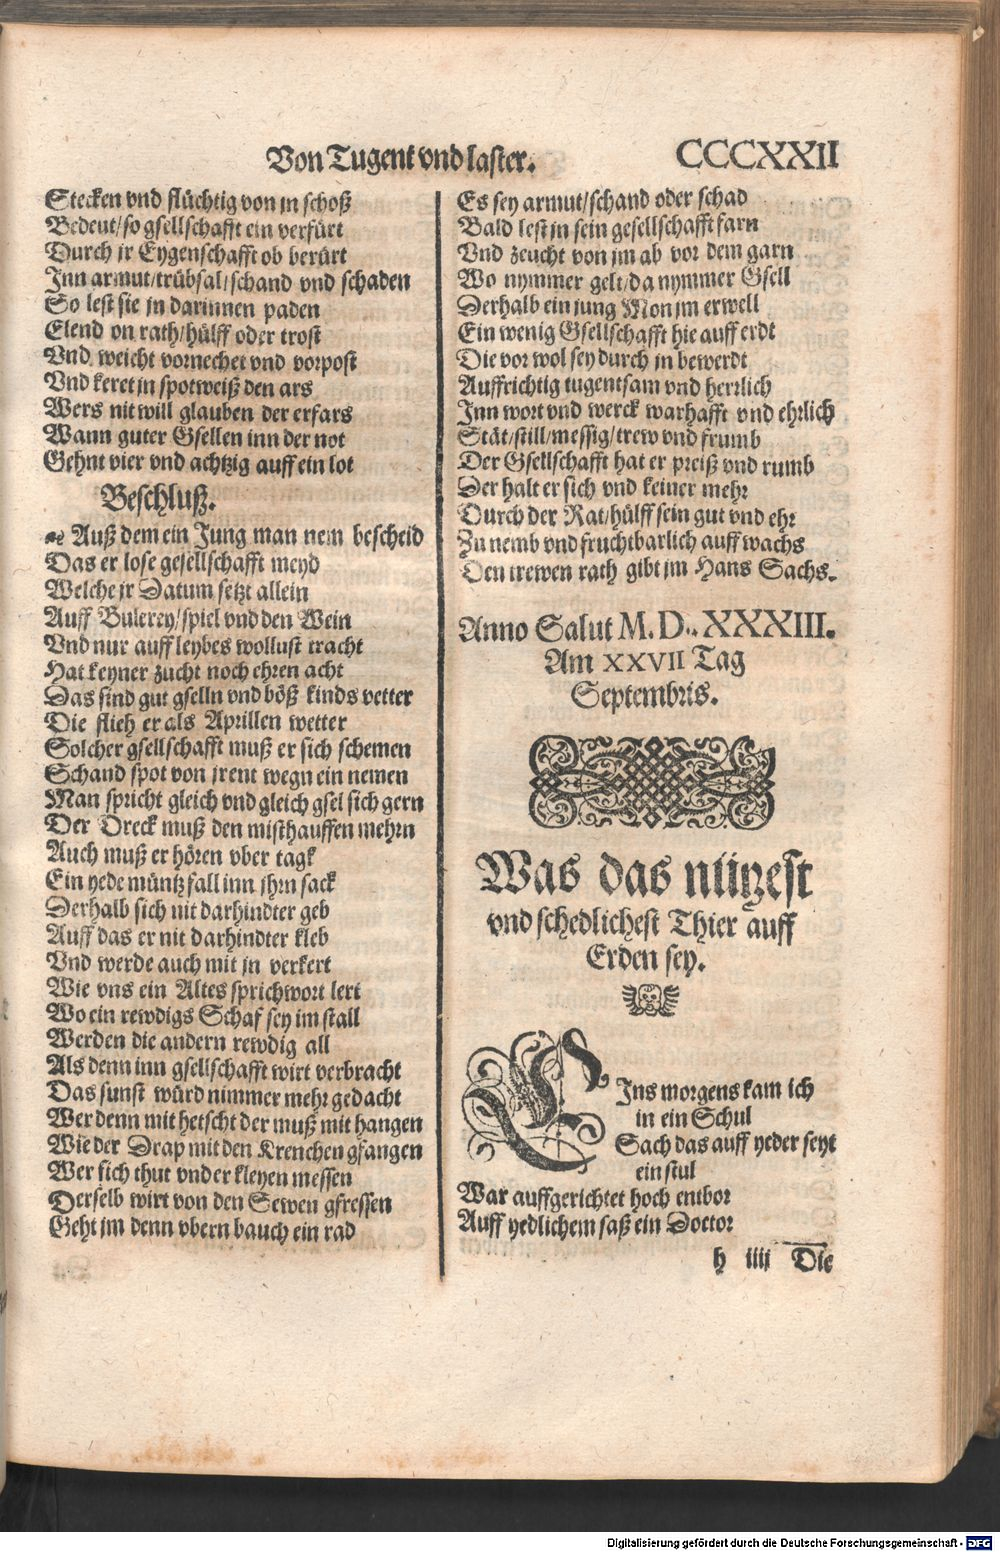 Von Tugent vnd laster. CCCXXII
Stecken vnd flüchtig von jn schoß
Bedeut/so gsellschafft ein verfürt
Durch jr Eygenschafft ob berürt
Inn armut/trübsal/schand vnd schaden
So lest sie jn darinnen paden
Elend on rath/hülff oder trost
Vnd weicht vornechet vnd vorpost
Vnd keret jn spotweiß den ars
Wers nit will glauben der erfars
Wann guter Gsellen inn der not
Gehnt vier vnd achtzig auff ein lot
Beschluß.
Auß dem ein Jung man nem bescheid
Das er lose gesellschafft meyd
Welche jr Datum setzt allein
Auff Bulerey/spiel vnd den Wein
Vnd nur auff leybes wollust tracht
Hat keyner zucht noch ehren acht
Das sind gut gselln vnd böß kinds vetter
Die flieh er als Aprillen wetter
Solcher gsellschafft muß er sich schemen
Schand spot von jrent wegn ein nemen
Man spricht gleich vnd gleich gsel sich gern
Der Dreck muß den misthauffen mehrn
Auch muß er hören vber tagk
Ein yede müntz fall inn jhrn sack
Derhalb sich nit darhindter geb
Auff das er nit darhindter kleb
Vnd werde auch mit jn verkert
Wie vns ein Altes sprichwort lert
Wo ein rewdigs Schaf sey im stall
Werden die andern rewdig all
Als denn inn gsellschafft wirt verbracht
Das sunst würd nimmer mehr gedacht
Wer denn mit hetscht der muß mit hangen
Wie der Drap mit den Krenchen gfangen
Wer sich thut vnder kleyen messen
Derselb wirt von den Sewen gfressen
Geht jm denn vbern bauch ein rad
Es sey armut/schand oder schad
Bald lest jn sein gesellschafft farn
Vnd zeucht von jm ab vor dem garn
Wo nymmer gelt/da nymmer Gsell
Derhalb ein jung Mon jm erwell
Ein wenig Gsellschafft hie auff erdt
Die vor wol sey durch jn bewerdt
Auffrichtig tugentsam vnd herrlich
Inn wort vnd werck warhafft vnd ehrlich
Stät/still/messig/trew vnd frumb
Der Gsellschafft hat er preiß vnd rumb
Der halt er sich vnd keiner mehr
Durch der Rat/hülff sein gut vnd ehr
Zu nemb vnd fruchtbarlich auff wachs
Den trewen rath gibt jm Hans Sachs.
Anno Salut M. D.. XXXIII.
Am XXVII Tag
Septembris.
Was das nützest
vnd schedlichest Thier auff
Erden sey.
EIns morgens kam ich
in ein Schul
Sach das auff yeder seyt
ein stul
War auffgerichtet hoch entbor
Auff yedlichem saß ein Doctor
h iiii Die
Digitalisierung gefördert durch die Deutsche Forschungsgemeinschaft - DFG